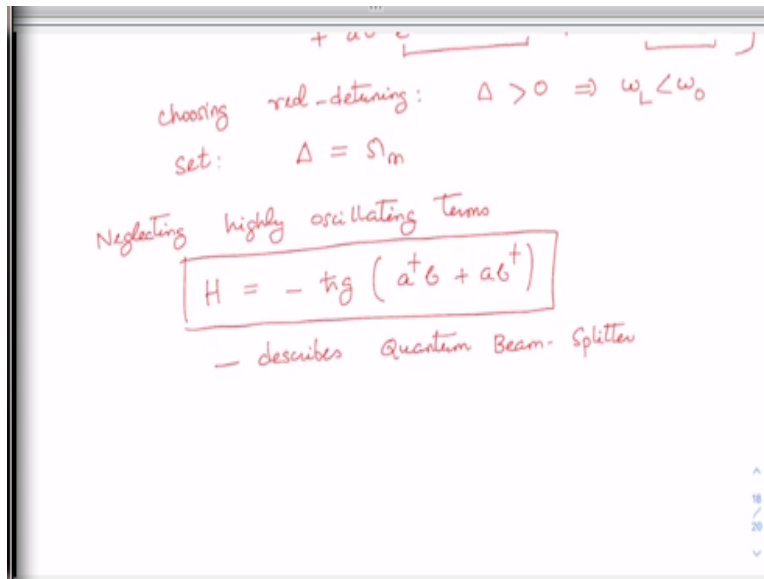 choosing red-detuning: Δ > 0 ⇒ ω_L < ω_0
set: Δ = Ω_m
Neglecting highly oscillating terms
H = - ħg ( a†b + ab† )
— describes Quantum Beam-Splitter
18
/
20